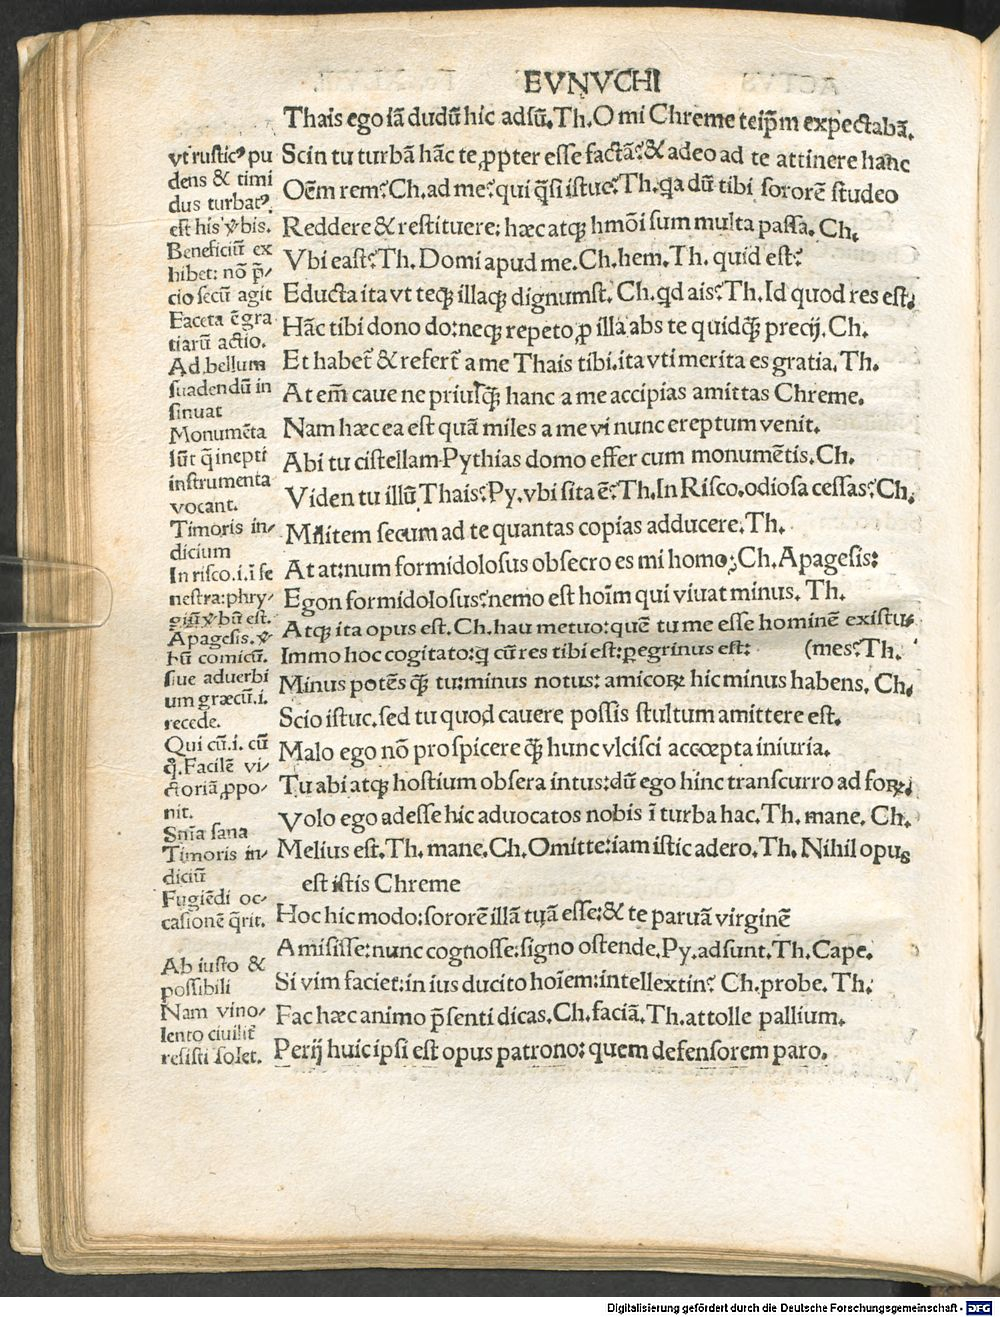 EVNVCHI
Thais ego iã dudũ hic adsũ. Th. O mi Chreme teip̃m expectabã.
Scin tu turbã hãc te ꝓpter esse factã? & adeo ad te attinere hanc
Oẽm rem? Ch. ad me? qui q̃si istuc? Th. qa dũ tibi sororẽ studeo
Reddere & restituere: hæc atqꝫ hmõi sum multa passa. Ch.
Vbi east? Th. Domi apud me. Ch. hem. Th. quid est?
Educta ita vt teqꝫ illaqꝫ dignumst. Ch. qd ais? Th. Id quod res est.
Hãc tibi dono do: neqꝫ repeto ꝓ illa abs te quidq̃ꝫ precij. Ch.
Et habet̃ & refert̃ a me Thais tibi. ita vti merita es gratia. Th.
At em̃ caue ne priusq̃ꝫ hanc a me accipias amittas Chreme.
Nam hæc ea est quã miles a me vi nunc ereptum venit.
Abi tu cistellam Pythias domo effer cum monumẽtis. Ch.
Viden tu illũ Thais? Py. vbi sita ẽ? Th. In Risco. odiosa cessas? Ch.
Militem secum ad te quantas copias adducere. Th.
At at: num formidolosus obsecro es mi homo? Ch. Apagesis:
Egon formidolosus? nemo est hoĩm qui viuat minus. Th.
Atqꝫ ita opus est. Ch. hau metuo: quẽ tu me esse hominẽ existu-
Immo hoc cogitato: q cũ res tibi est: ꝑegrinus est: (mes? Th.
Minus potẽs q̃ꝫ tu: minus notus: amicoꝝ hic minus habens. Ch.
Scio istuc. sed tu quod cauere possis stultum amittere est.
Malo ego nõ prospicere q̃ꝫ hunc vlcisci accoepta iniuria.
Tu abi atqꝫ hostium obsera intus: dũ ego hinc transcurro ad foꝝ:
Volo ego adesse hic aduocatos nobis ĩ turba hac. Th. mane. Ch.
Melius est. Th. mane. Ch. Omitte: iam istic adero. Th. Nihil opus
est istis Chreme
Hoc hic modo: sororẽ illã tuã esse: & te paruã virginẽ
Amisisse: nunc cognosse: signo ostende. Py. adsunt. Th. Cape.
Si vim faciet: in ius ducito hoĩem: intellextin? Ch. probe. Th.
Fac hæc animo p̃senti dicas. Ch. faciã. Th. attolle pallium.
Perij huic ipsi est opus patrono: quem defensorem paro.
vt rusticꝰ pu
dens & timi
dus turbatꝰ
est his v̾bis.
Beneficiũ ex
hibet: nõ p̃-
cio secũ agit
Faceta ẽ gra
tiarũ actio.
Ad bellum
suadendũ in
sinuat
Monumẽta
sũt q̃ inepti
instrumenta
vocant.
Timoris in-
dicium
In risco. i. ĩ fe
nestra: phry-
giũ v̾bũ est.
Apagesis. v̾
bũ comicũ.
siue aduerbi
um græcũ. i.
recede.
Qui cũ. i. cũ
q̊. Facilẽ vi-
ctoriã ꝓpo-
nit.
Snĩa sana
Timoris in-
diciũ
Fugiẽdi oc-
casionẽ q̃rit.
Ab iusto &
possibili
Nam vino-
lento ciuilit̃
resisti solet.
Digitalisierung gefördert durch die Deutsche Forschungsgemeinschaft - DFG